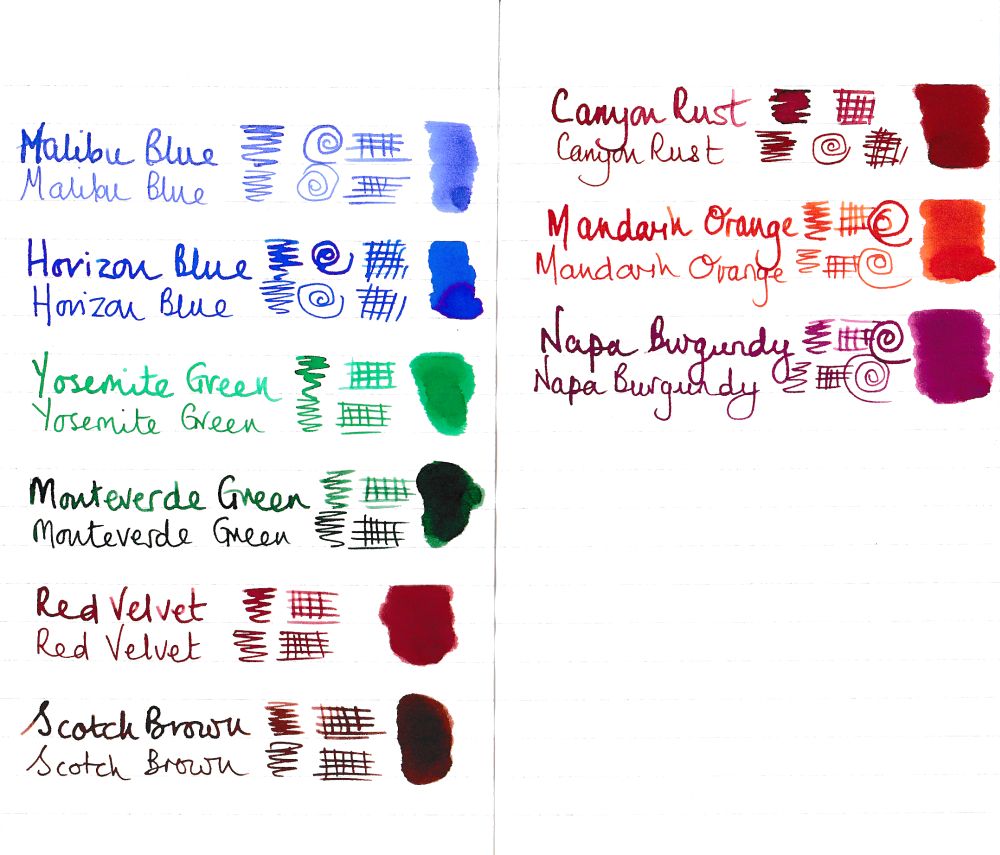 Malibu Blue
Malibu Blue
Horizon Blue
Horizon Blue
Yosemite Green
Yosemite Green
Monteverde Green
Monteverde Green
Red Velvet
Red Velvet
Scotch Brown
Scotch Brown
Canyon Rust
Canyon Rust
Mandarin Orange
Mandarin Orange
Napa Burgundy
Napa Burgundy